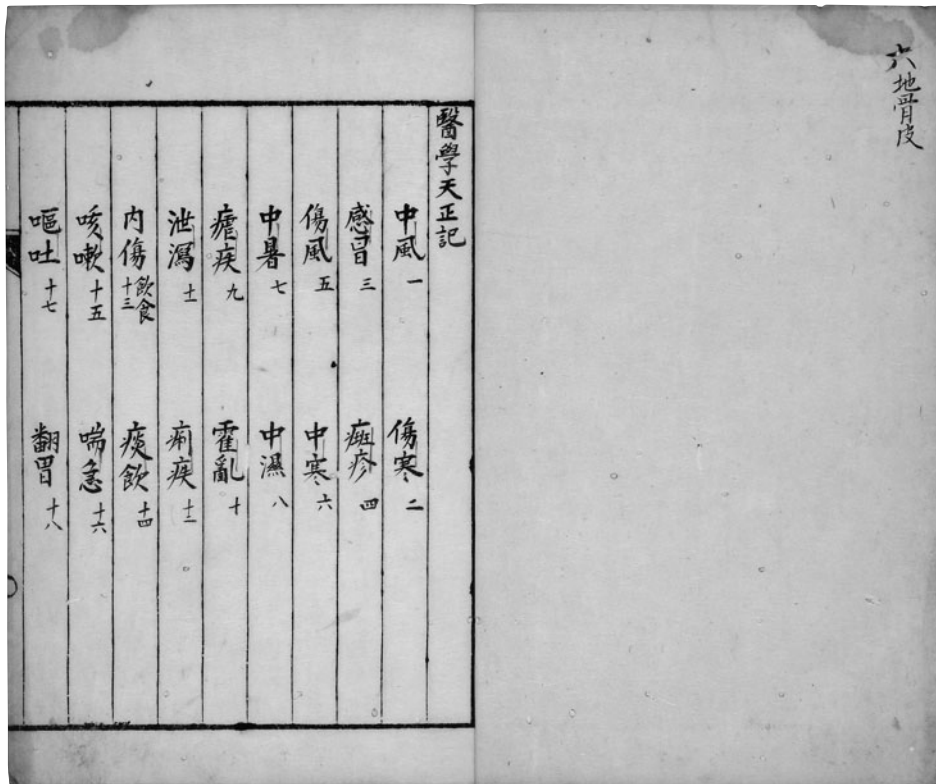 六地骨皮
醫學天正記
中風一 傷寒二
感冒三 斑疹四
傷風五 中寒六
中暑七 中濕八
瘧疾九 霍亂十
泄瀉十一 痢疾十二
内傷飲食十三 痰飲十四
咳嗽十五 喘急十六
嘔吐十七 翻胃十八